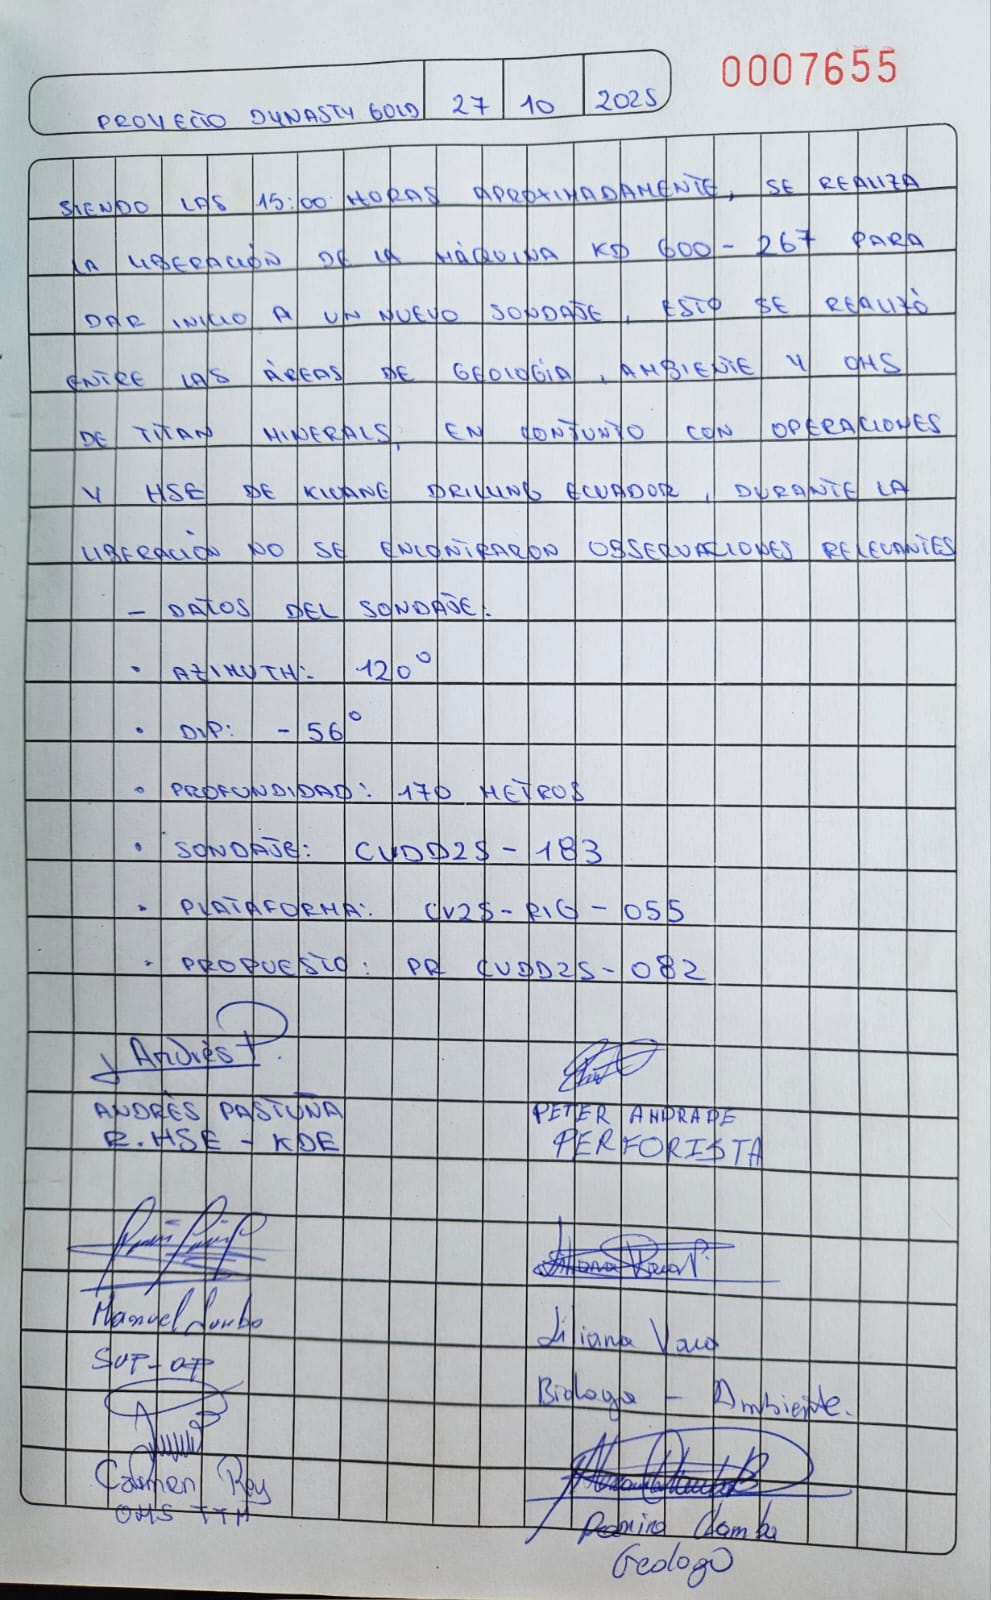 0007655
PROYECTO DYNASTY GOLD 27 10 2025
SIENDO LAS 15:00 HORAS APROXIMADAMENTE, SE REALIZA
LA LIBERACIÓN DE LA MÁQUINA KD 600-267 PARA
DAR INICIO A UN NUEVO SONDAJE, ESTO SE REALIZÓ
ENTRE LAS ÁREAS DE GEOLOGÍA, AMBIENTE Y OHS
DE TITAN MINERALS, EN CONJUNTO CON OPERACIONES
Y HSE DE KLUANE DRILLING ECUADOR, DURANTE LA
LIBERACIÓN NO SE ENCONTRARON OBSERVACIONES RELEVANTES
- DATOS DEL SONDAJE:
• AZIMUTH: 120°
• DIP: -56°
• PROFUNDIDAD: 170 METROS
• SONDAJE: CVDD25-183
• PLATAFORMA: CV25-RIG-055
• PROPUESTO: PR CVDD25-082
Andrés P.
ANDRÉS PASTUÑA
R.HSE - KDE
PETER ANDRADE
PERFORISTA
Manuel
SUP-OP
Liliana Vaca
Biologa - Ambiente.
Carmen Rey
OHS TTM
Ramiro
Geologo